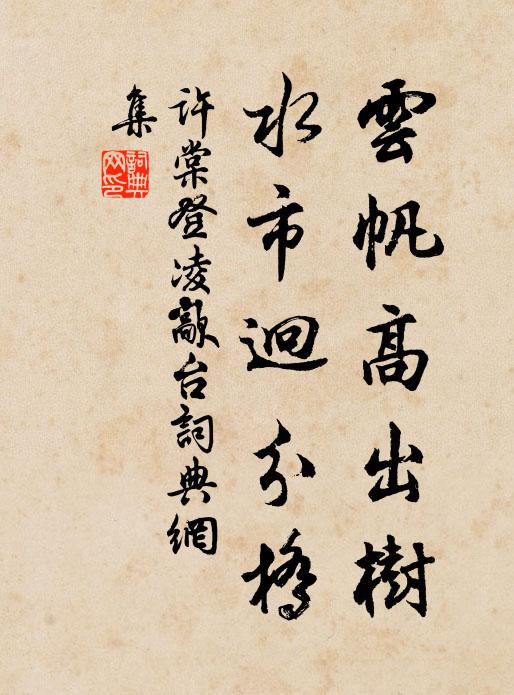 雲帆高出樹
水市迥分橋
許棠登凌歊台詞典網
集
詞典網印